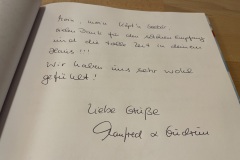 vielen Dank für den schönen Empfang
und die tolle Zeit in deinem
Haus!!!
Wir haben uns sehr wohl
gefühlt!
Liebe Grüße
Manfred & Gudrun